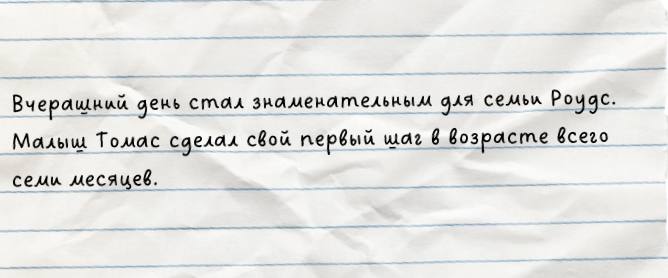 Вчерашний день стал знаменательным для семьи Роудс.
Малыш Томас сделал свой первый шаг в возрасте всего
семи месяцев.